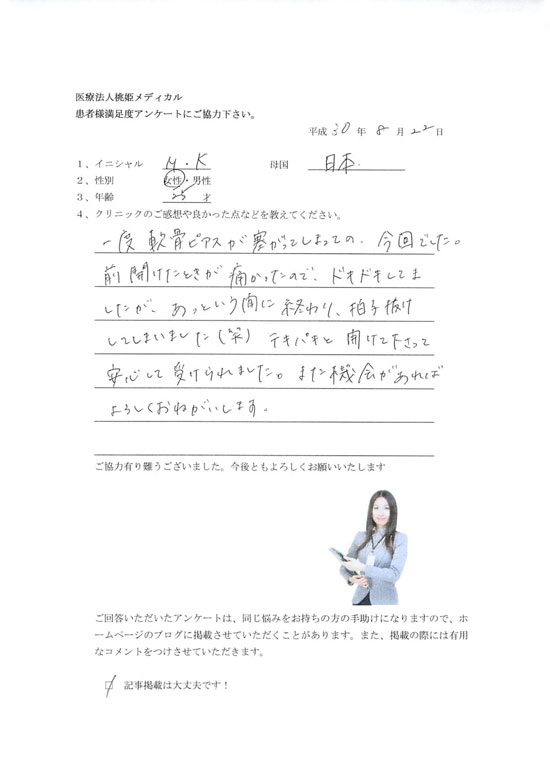 医療法人桃姫メディカル
患者様満足度アンケートにご協力下さい。
平成 30 年 8 月 22 日
1、イニシャル M・K 母国 日本
2、性別 女性・男性
3、年齢 25 才
4、クリニックのご感想や良かった点などを教えてください。
一度 軟骨ピアスが塞がってしまっての、今回でした。
前 開けたときが 痛かったので、ドキドキしてま
したが、あっという間に 終わり、拍子抜け
してしまいました(笑) テキパキと 開けて下さって
安心して 受けられました。また機会があれば
よろしくおねがいします。
ご協力有り難うございました。今後ともよろしくお願いいたします
ご回答いただいたアンケートは、同じ悩みをお持ちの方の手助けになりますので、ホ
ームページのブログに掲載させていただくことがあります。また、掲載の際には有用
なコメントをつけさせていただきます。
記事掲載は大丈夫です！